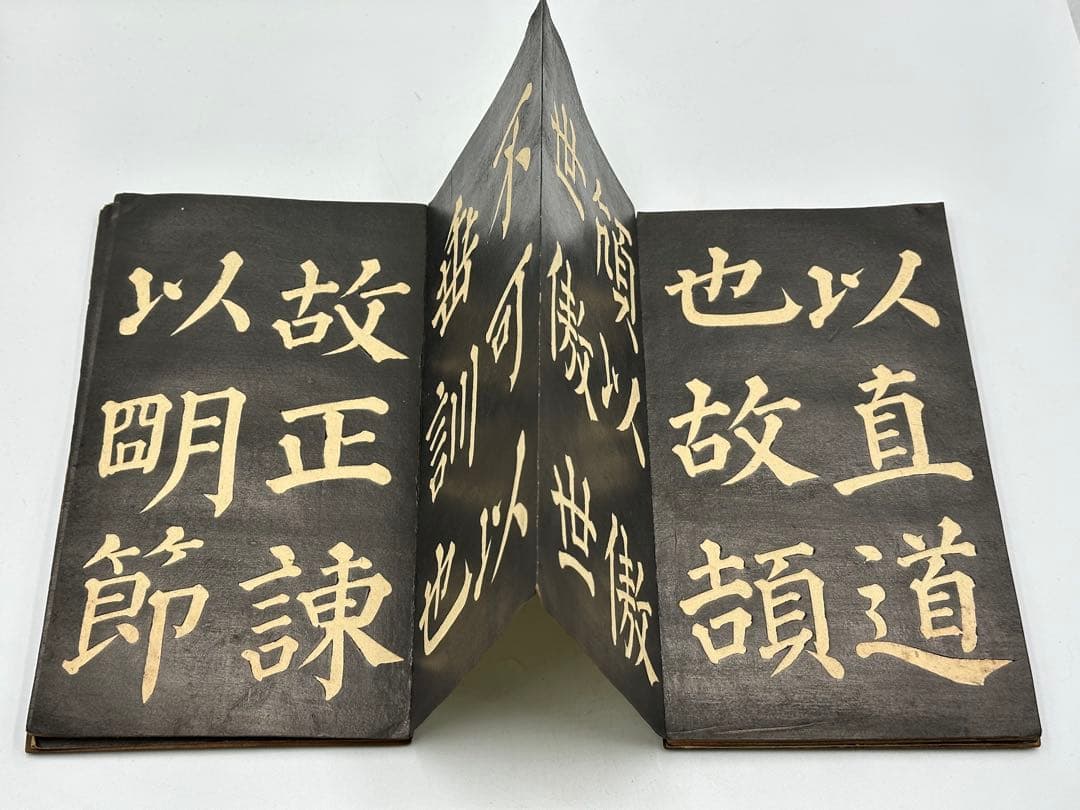 以直道
也故頡
頏以傲
世傲世
不可以
垂訓也
故正諫
以明節